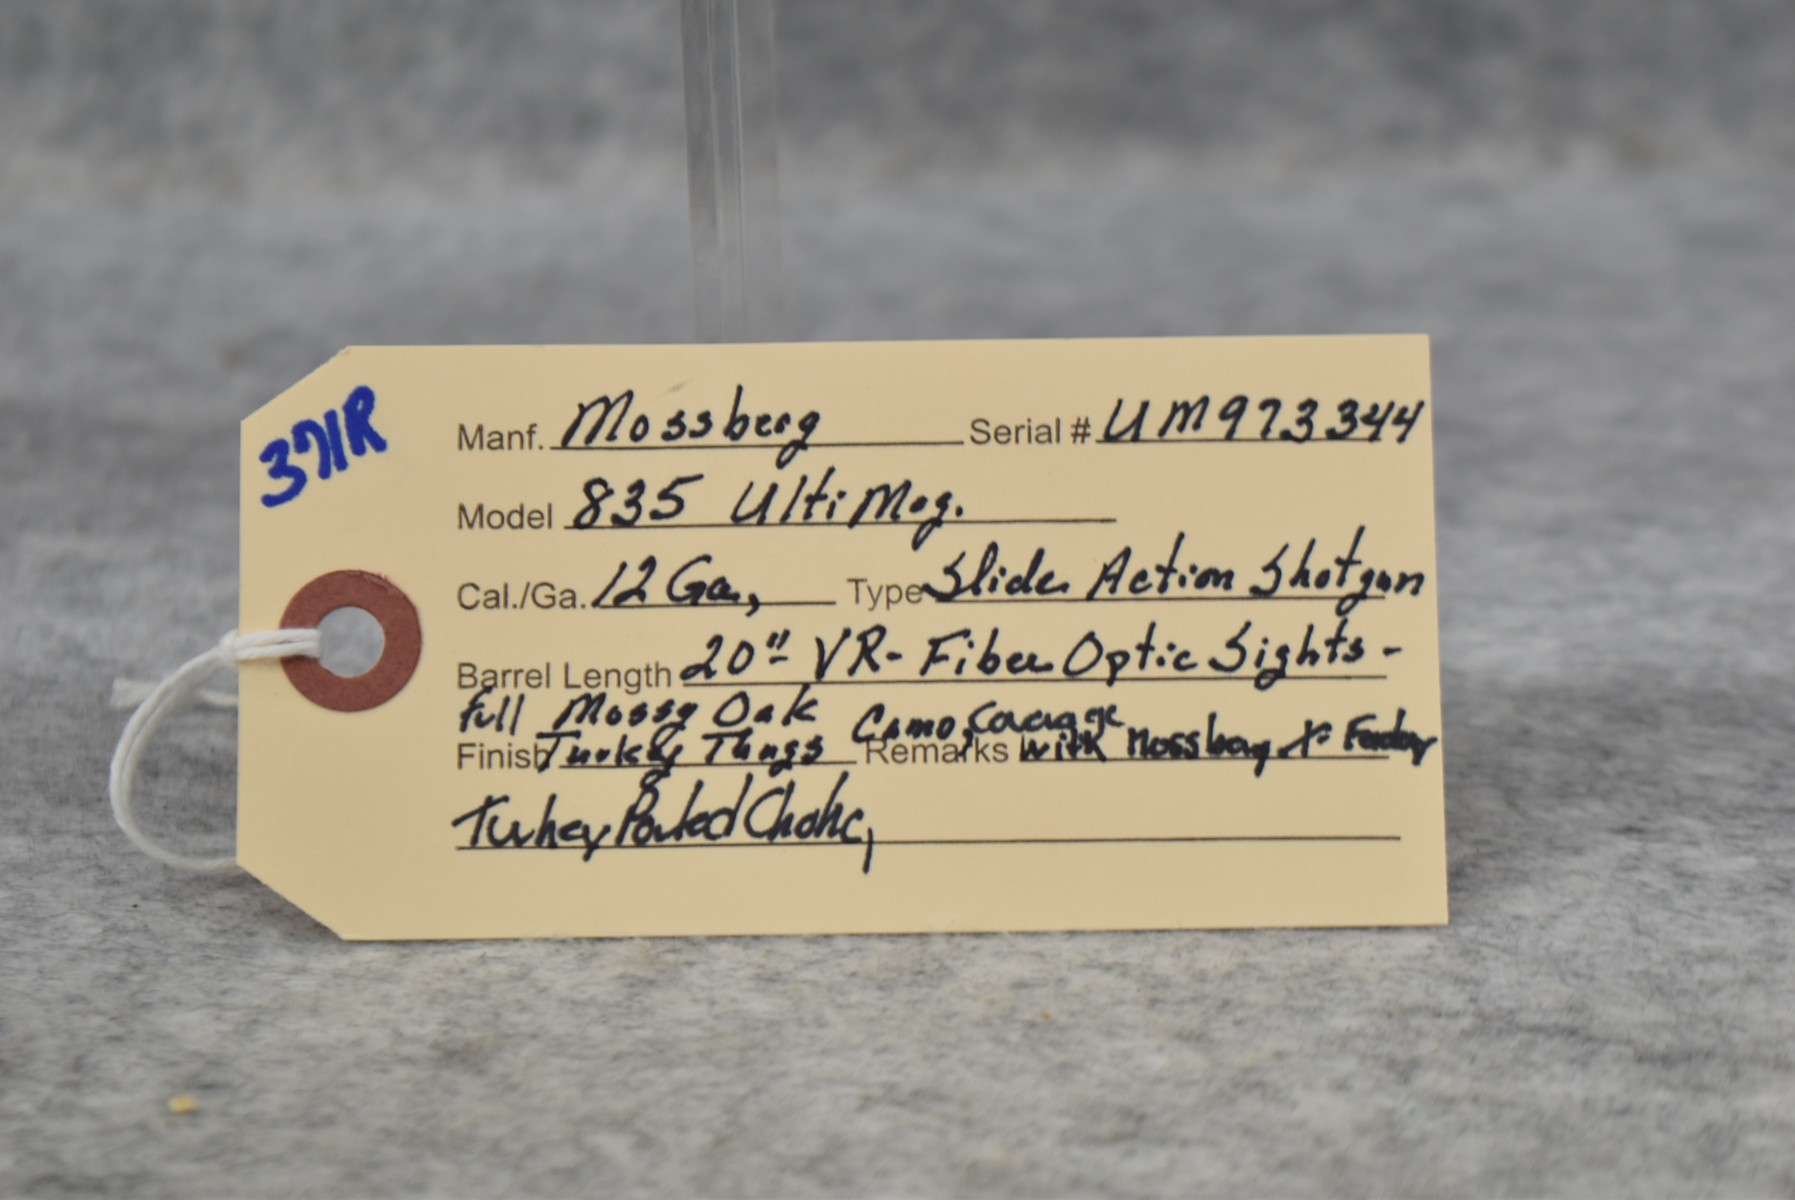 371R
Manf. Mossberg Serial # UM973344
Model 835 Ulti Mag.
Cal./Ga. 12 Ga, Type Slide Action Shotgun
Barrel Length 20" VR- Fiber Optic Sights -
Full Mossy Oak Camo,
Finish Turkey Thugs Remarks with Mossberg
Turkey Ported Choke,